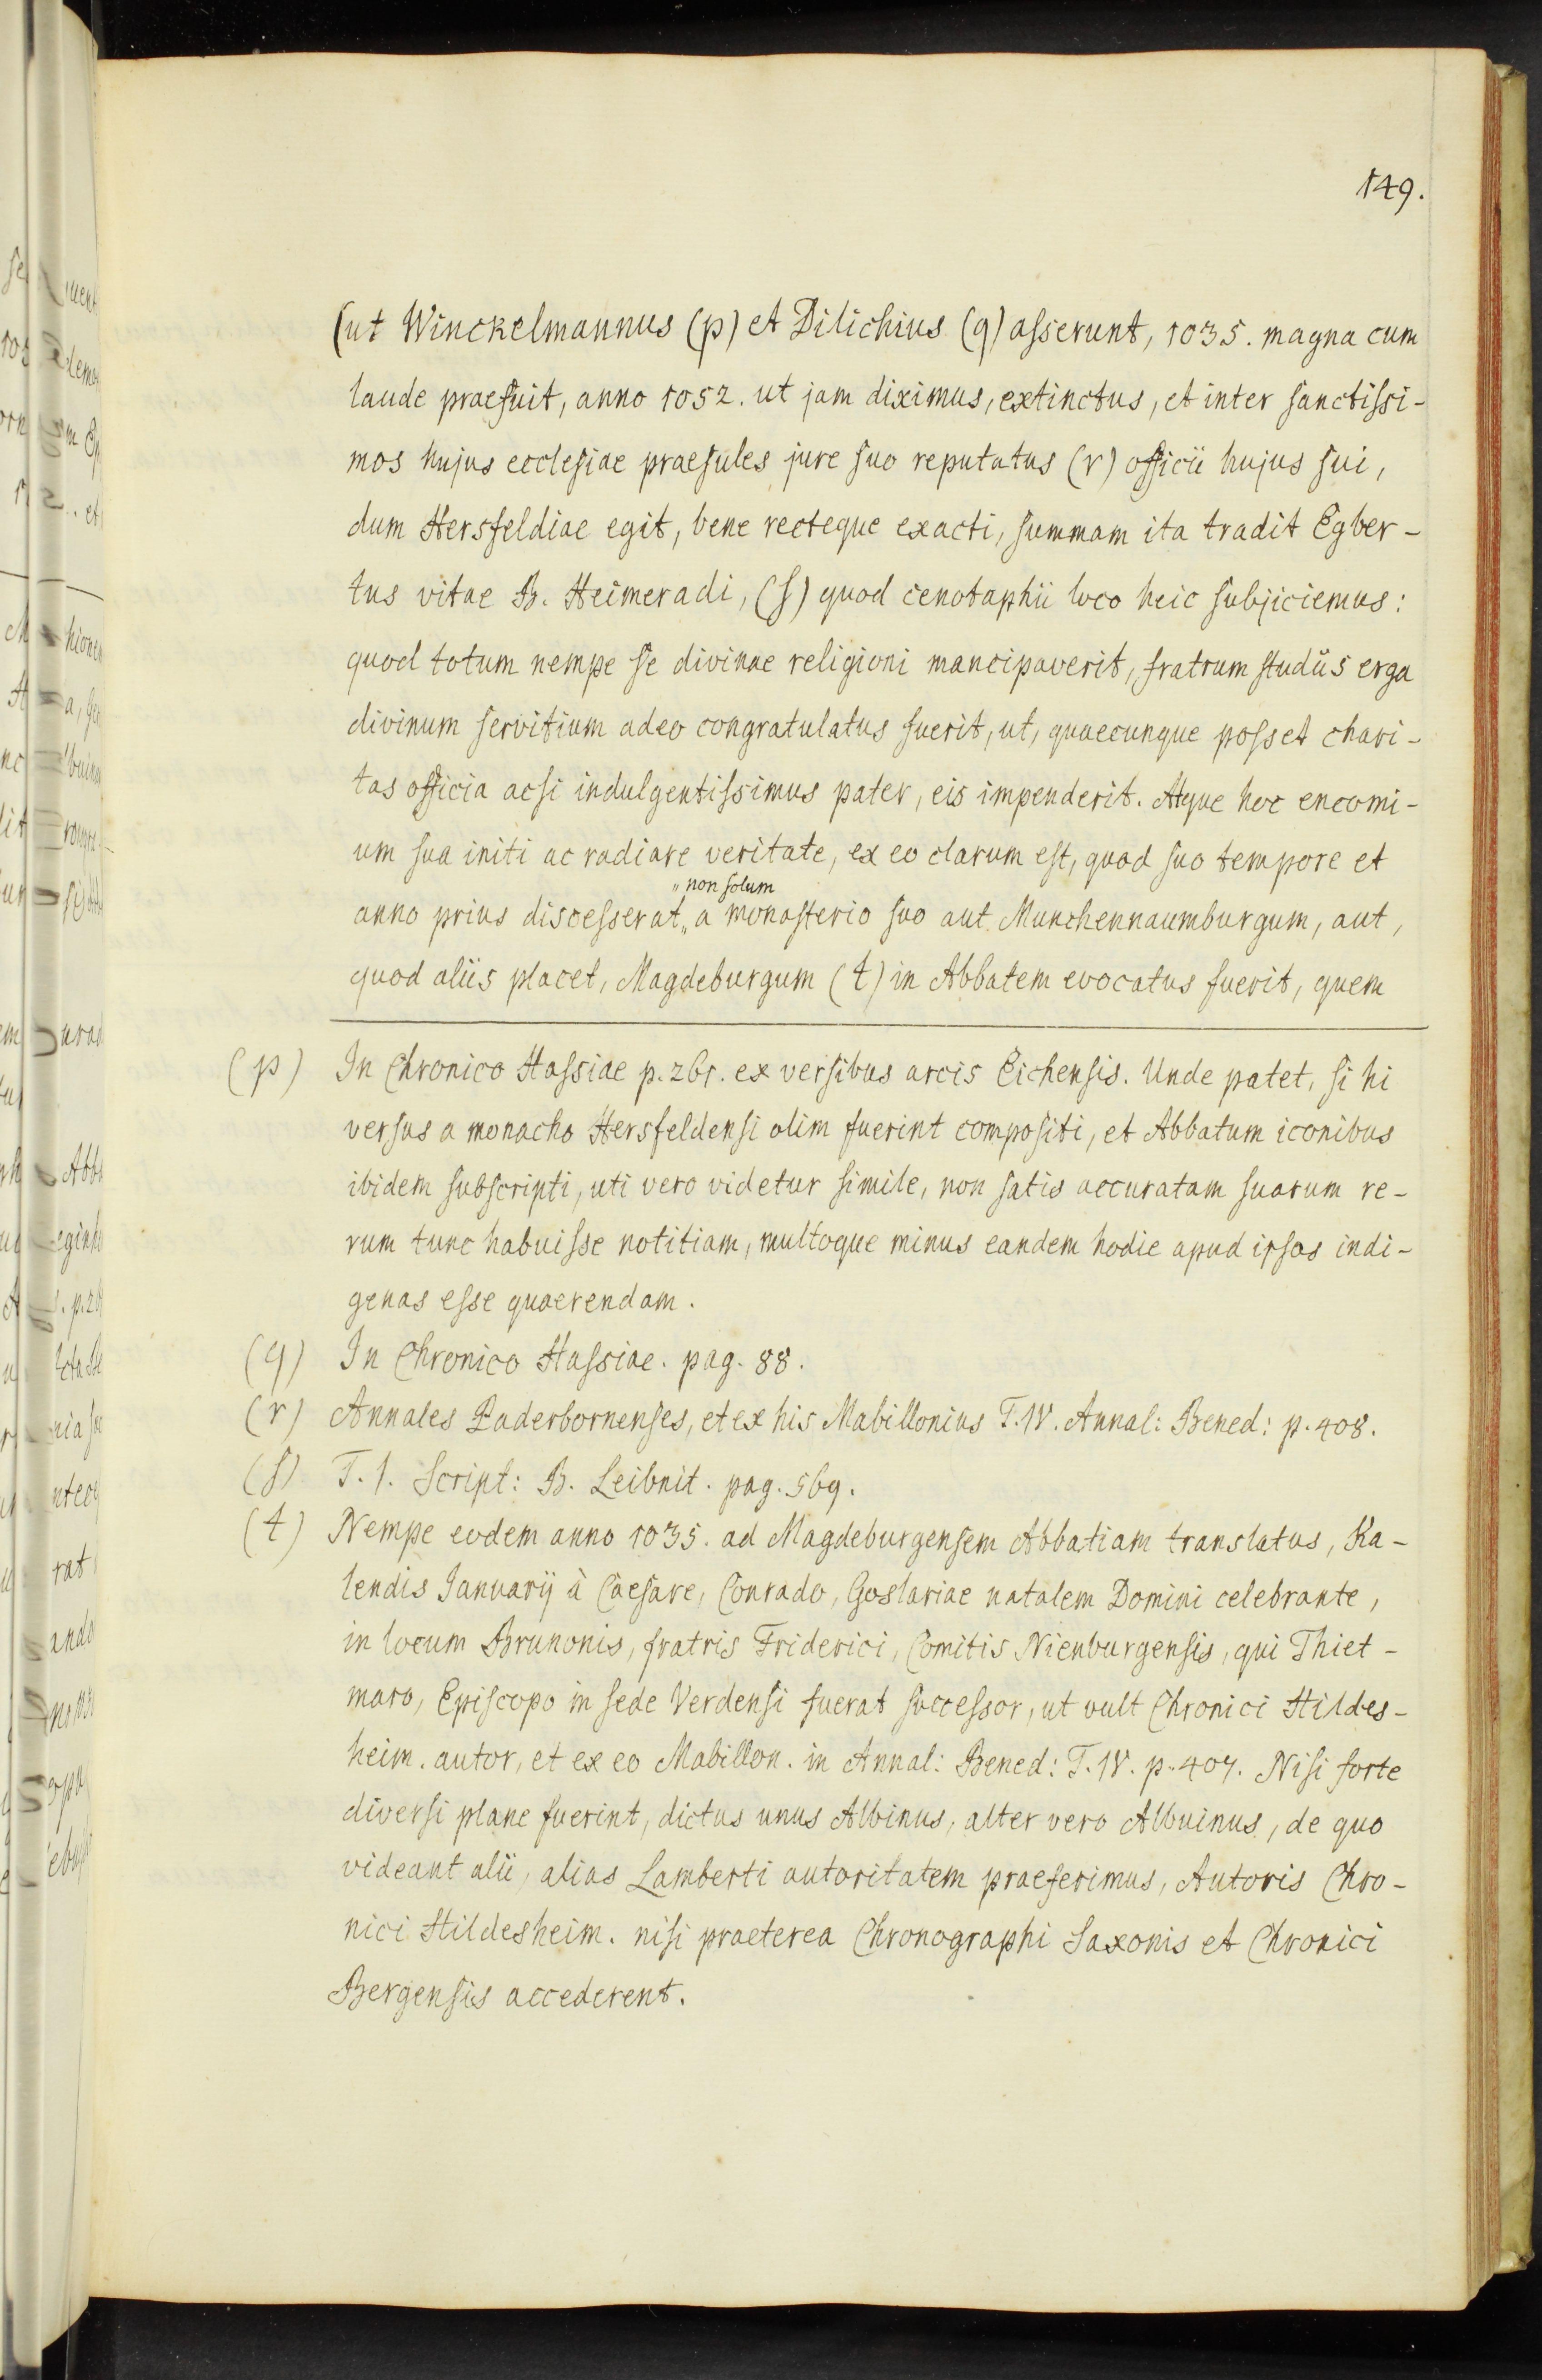 149.
(ut Winckelmannus (p) et Dilichius (q) asserunt, 1035. magna cum
laude praefuit, anno 1052. ut jam diximus, extinctus, et inter sanctissi-
mos hujus ecclesiae praesules jure suo reputatus (r) officii hujus sui,
dum Hersfeldiae egit, bene recteque exacti, summam ita tradit Egber-
tus vitae B. Heimeradi, (s) quod cenotaphii loco heic subjiciemus:
quod totum nempe se divinae religioni mancipaverit, fratrum studiis erga
divinum servitium adeo congratulatus fuerit, ut, quaecunque posset chari-
tas officia acsi indulgentissimus pater, eis impenderit. Atque hoc encomi-
um sua initi ac radiare veritate, ex eo clarum est, quod suo tempore et
„non solum
anno prius discesserat„ a monasterio suo aut Munchennaumburgum, aut,
quod aliis placet, Magdeburgum (t) in Abbatem evocatus fuerit, quem
(p) In Chronico Hassiae p. 261. ex versibus arcis Eichensis. Unde patet, si hi
versus a monacho Hersfeldensi olim fuerint compositi, et Abbatum iconibus
ibidem subscripti, uti vero videtur simile, non satis accuratam suarum re-
rum tunc habuisse notitiam, multoque minus eandem hodie apud ipsos indi-
genas esse quaerendam.
(q) In Chronico Hassiae. pag. 88.
(r) Annales Paderbornenses, et ex his Mabillonius T. IV. Annal: Bened: p. 408.
(s) T. I. Script: B. Leibnit. pag. 569.
(t) Nempe eodem anno 1035. ad Magdeburgensem Abbatiam translatus, Ka-
lendis Januarij à Caesare, Conrado, Goslariae natalem Domini celebrante,
in locum Brunonis, fratris Friderici, Comitis Nienburgensis, qui Thiet-
maro, Episcopo in sede Verdensi fuerat successor, ut vult Chronici Hildes-
heim. autor, et ex eo Mabillon. in Annal: Bened: T. IV. p. 407. Nisi forte
diversi plane fuerint, dictus unus Albinus, alter vero Albuinus, de quo
videant alii, alias Lamberti autoritatem praeferimus, Autoris Chro-
nici Hildesheim. nisi praeterea Chronographi Saxonis et Chronici
Bergensis accederent.